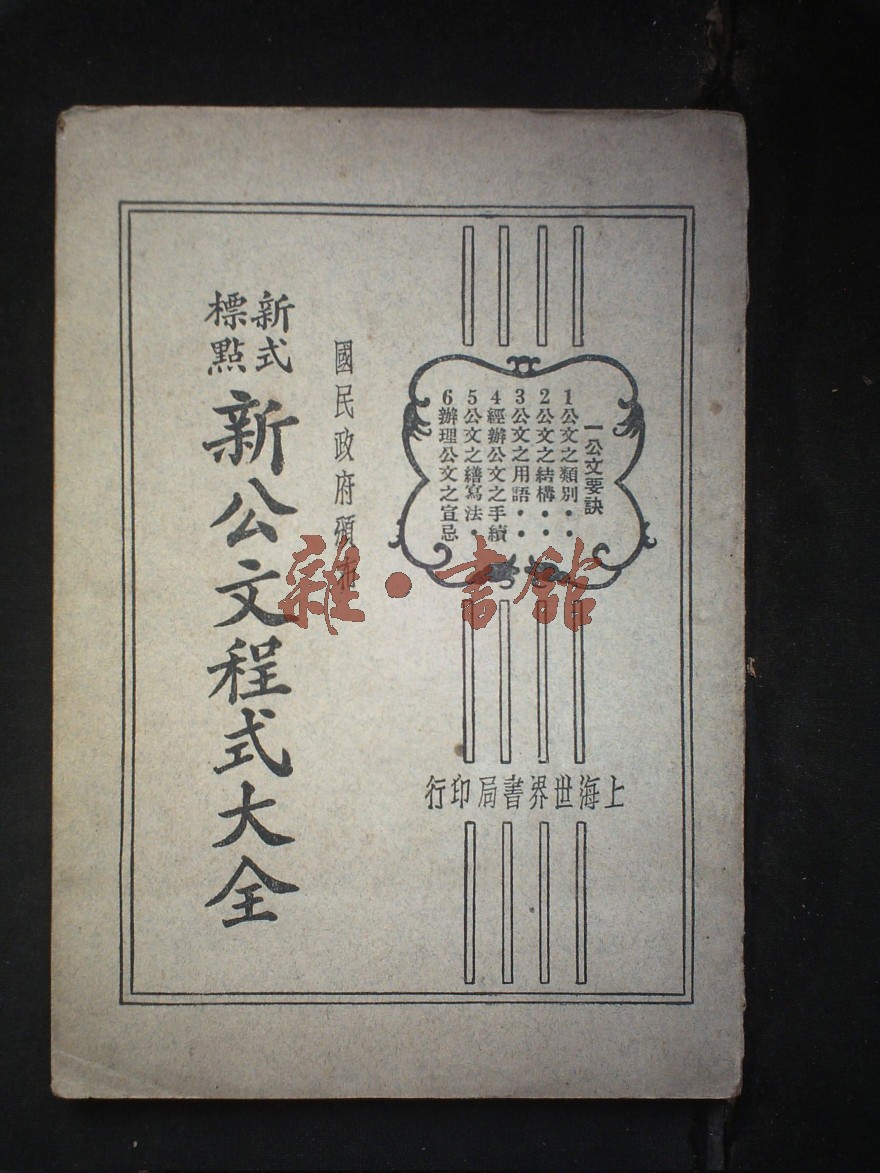 一公文要訣
1公文之類別・・
2公文之結構・・
3公文之用語・・
4經辦公文之手續
5公文之繕寫法・
6辦理公文之宜忌
上海世界書局印行
國民政府頒布
新式
標點
新公文程式大全
雜・書館